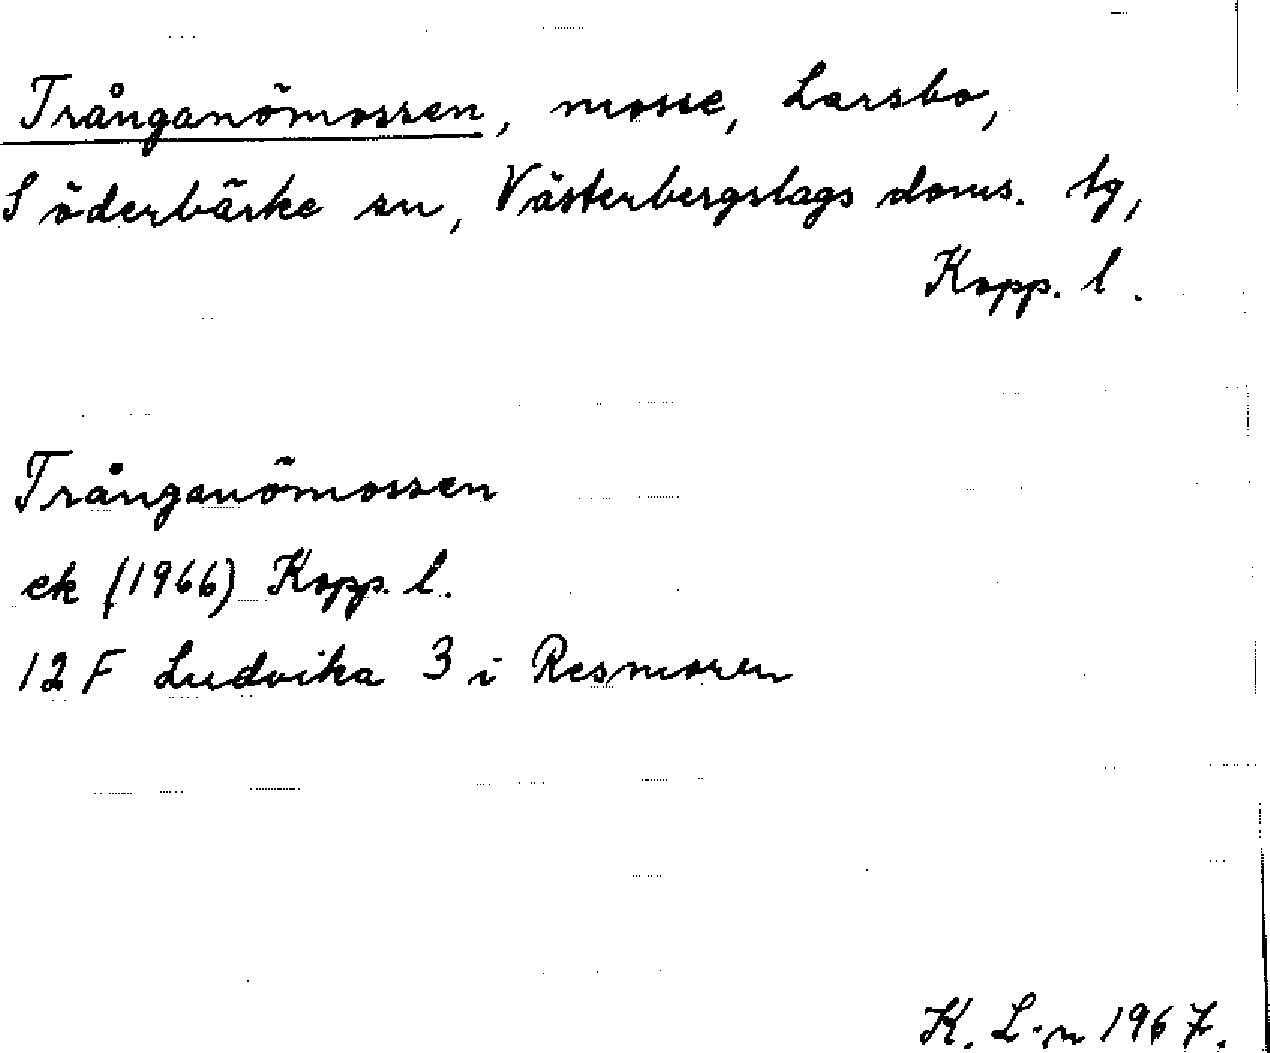 Trånganömossen, mosse, Larsbo,
Söderbärke sn, Västerbergslags doms. tg,
Kopp. l.
Trånganömossen
ek (1966) Kopp. l.
12 F Ludvika 3 i Resmoren
K. L-n 1967.